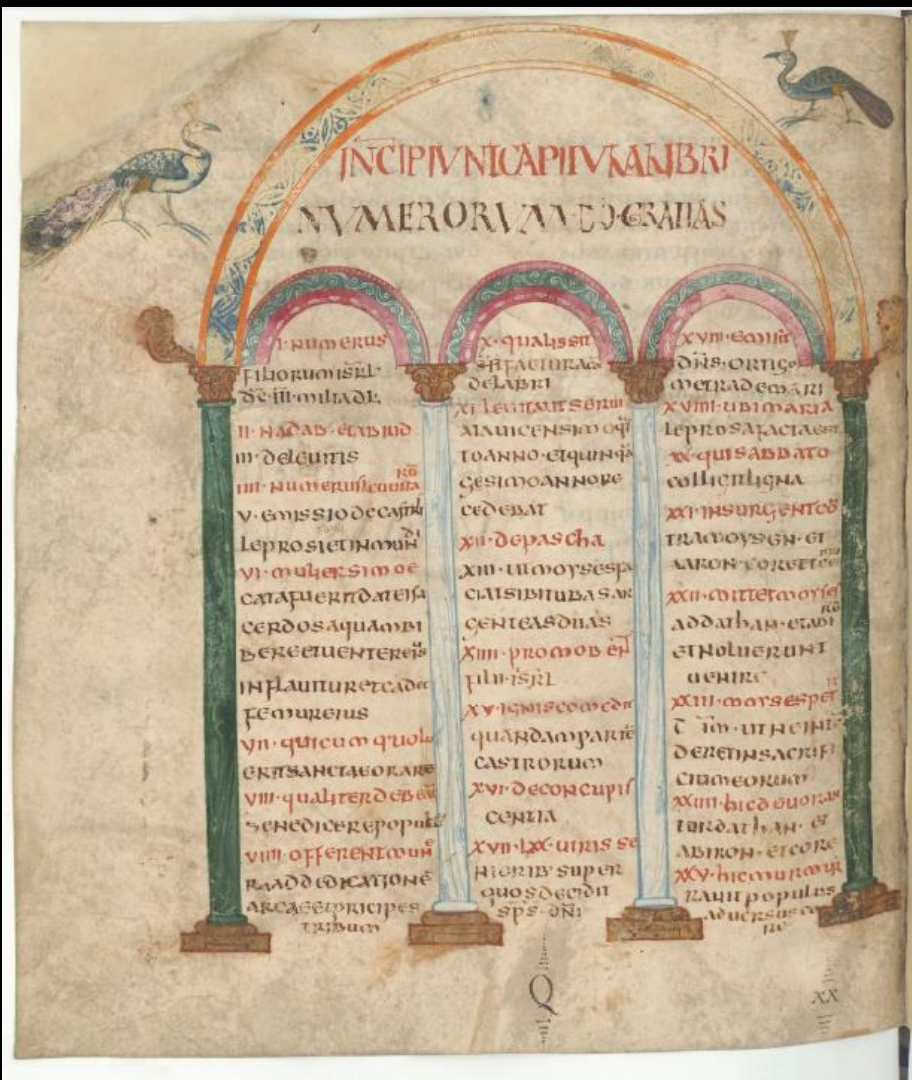 INCIPIVNT CAPITVLA LIBRI
NVMERORVM · DŌ GRATIAS
I · NUMERUS
FILIORUM ISRL
II · NADAB · ET ABIUD
III · DE LEUITIS
IIII · NUMERUS
V · EMISSIO DE
LEPROSI ET INMUN
VI · MULIER SI MOE
CERDOS AQUAM BI
BERE ET UENTER EIS
INFLATUR ET CADET
FEMUR EIUS
VII · QUICUM QUOL
ERIT SANCTA EORA
VIII · QUALITER DEBE
BENEDICERE POPULU
VIIII · OFFERENT MUN
RA AD DEDICATIONE
ARCAE ET PRICIPES
TRIBUUM
X · QUALIS SIT
FACTURA
DE LABRI
TO ANNO · ET QUINQUA
GESIMO ANNO RE
CEDEBAT
XII · DE PASCHA
XIII · UT MOYSES FA
CIAT SIBI TUBAS AR
GENTEAS DUAS
XIIII · PROMOB EN
FILII · ISRL
XV · IGNIS COMEDIT
QUANDAM PARTE
CASTRORUM
XVI · DE CONCUPIS
CENTIA
XVII · LXX · UIRIS SE
NIORIB SUPER
QUOS DECIDIT
SPS · DNI
XVIII · EMISIT
DNS · ORTIGO
METRA DE MARI
XVIIII · UBI MARIA
LEPROSA FACTA EST
XX · QUI SABBATO
COLLIGIT LIGNA
XXI · INSURGENT CO
TRA MOYSEN · ET
AARON · CORE
XXII · MITTET MOYSES
AD DATHAN · ET ABI
ET NOLUERUNT
UENIRE
XXIII · MOYSES PET
DERET IN SACRIFI
CIUM EORUM
XXIIII · HIC DEUORAN
TUR DATHAN · ET
ABIRON · ET CORE
XXV · HIC MURMU
RAUIT POPULUS
ADUERSUS
Q
XX